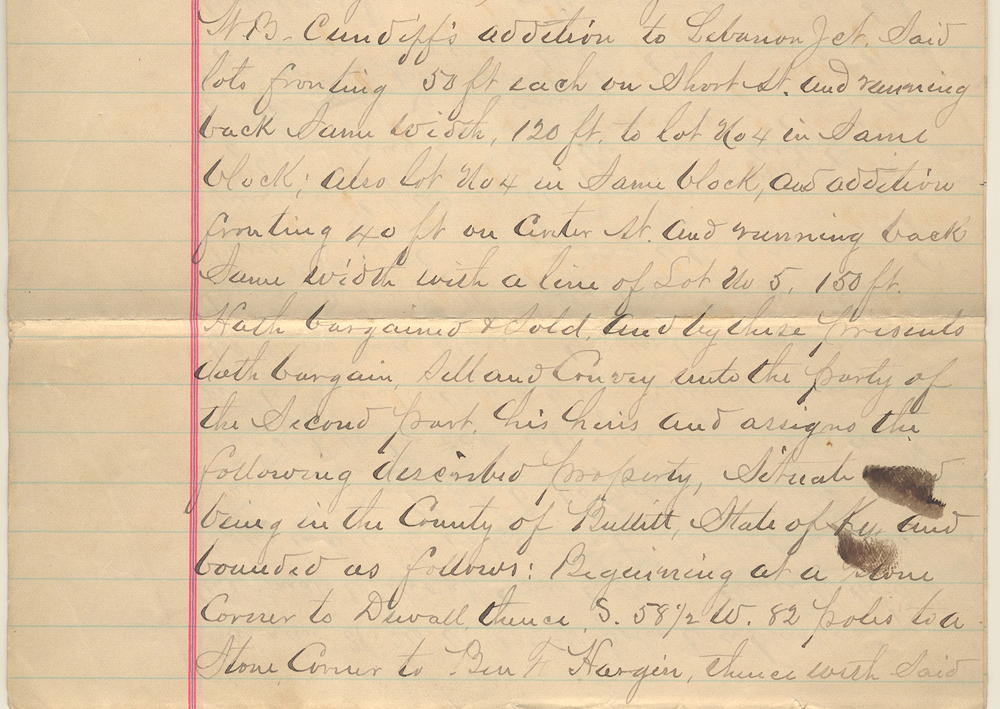 N.B. Cundiff's addition to Lebanon Jct. Said
lots fronting 50 ft each on Short St. and running
back same width, 120 ft. to lot No 4 in same
block; also lot No 4 in same block, and addition
fronting 40 ft on Center St. and running back
same width with a line of Lot No 5, 150 ft.
Hath bargained & sold, and by these presents
doth bargain, sell and Convey unto the party of
the Second part, his heirs and assigns the
following described property, Situate
being in the County of Bullitt, State of Ky and
bounded as follows: Beginning at a Stone
Corner to Duvall, thence, S. 58 1/2 W. 82 poles to a
Stone, Corner to Ben F Hargin, thence with said